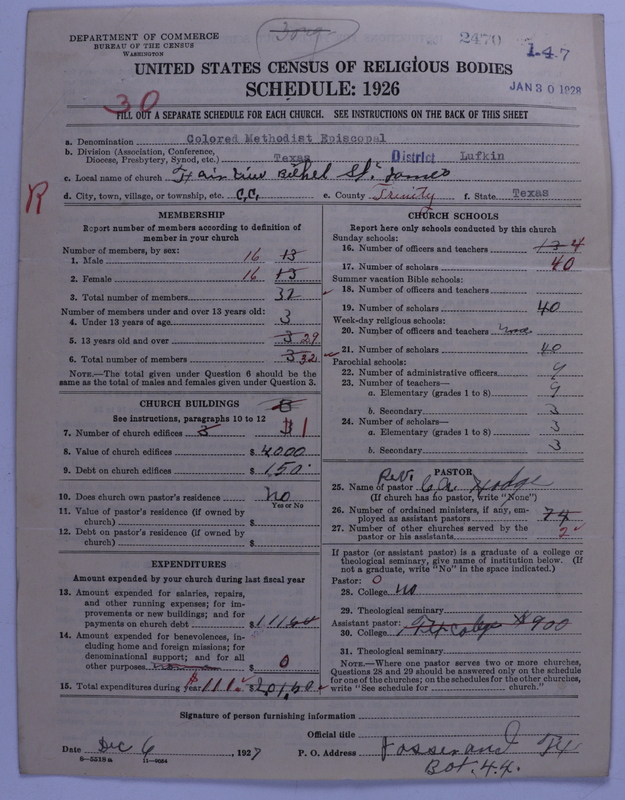 DEPARTMENT OF COMMERCE
BUREAU OF THE CENSUS
WASHINGTON
2470
1-4-7
UNITED STATES CENSUS OF RELIGIOUS BODIES
SCHEDULE: 1926
JAN 30 1928
30
FILL OUT A SEPARATE SCHEDULE FOR EACH CHURCH. SEE INSTRUCTIONS ON THE BACK OF THIS SHEET
a. Denomination Colored Methodist Episcopal
b. Division (Association, Conference, Diocese, Presbytery, Synod, etc.) Texas District Lufkin
c. Local name of church Fair View Bethel St. James
d. City, town, village, or township, etc. C.C. e. County Trinity f. State Texas
R
MEMBERSHIP
Report number of members according to definition of member in your church
Number of members, by sex:
1. Male 16 15
2. Female 16 15
3. Total number of members 32
Number of members under and over 13 years old:
4. Under 13 years of age 3
5. 13 years old and over 3 29
6. Total number of members 3 32
NOTE.—The total given under Question 6 should be the same as the total of males and females given under Question 3.
CHURCH BUILDINGS
See instructions, paragraphs 10 to 12
7. Number of church edifices 3 1
8. Value of church edifices $ 4000
9. Debt on church edifices $ 150
10. Does church own pastor's residence No
Yes or No
11. Value of pastor's residence (if owned by church) $
12. Debt on pastor's residence (if owned by church) $
EXPENDITURES
Amount expended by your church during last fiscal year
13. Amount expended for salaries, repairs, and other running expenses; for improvements or new buildings; and for payments on church debt $ 111.64
14. Amount expended for benevolences, including home and foreign missions; for denominational support; and for all other purposes $ 0
15. Total expenditures during year $111 $ 201,60
CHURCH SCHOOLS
Report here only schools conducted by this church
Sunday schools:
16. Number of officers and teachers 13 4
17. Number of scholars 40
Summer vacation Bible schools:
18. Number of officers and teachers
19. Number of scholars 40
Week-day religious schools:
20. Number of officers and teachers
21. Number of scholars 40
Parochial schools:
22. Number of administrative officers 9
23. Number of teachers—
a. Elementary (grades 1 to 8) 9
b. Secondary 3
24. Number of scholars—
a. Elementary (grades 1 to 8) 3
b. Secondary 3
PASTOR
25. Name of pastor Rev. C A Hodge
(If church has no pastor, write "None")
26. Number of ordained ministers, if any, employed as assistant pastors
27. Number of other churches served by the pastor or his assistants 2
If pastor (or assistant pastor) is a graduate of a college or theological seminary, give name of institution below. (If not a graduate, write "No" in the space indicated.)
Pastor: 0
28. College No
29. Theological seminary
Assistant pastor:
30. College Tex College $900
31. Theological seminary
NOTE.—Where one pastor serves two or more churches, Questions 28 and 29 should be answered only on the schedule for one of the churches; on the schedules for the other churches, write "See schedule for church."
Signature of person furnishing information
Official title
Date Dec 6, 1927 P. O. Address Josserand Tex
Box 44
6—5518a 11—9064